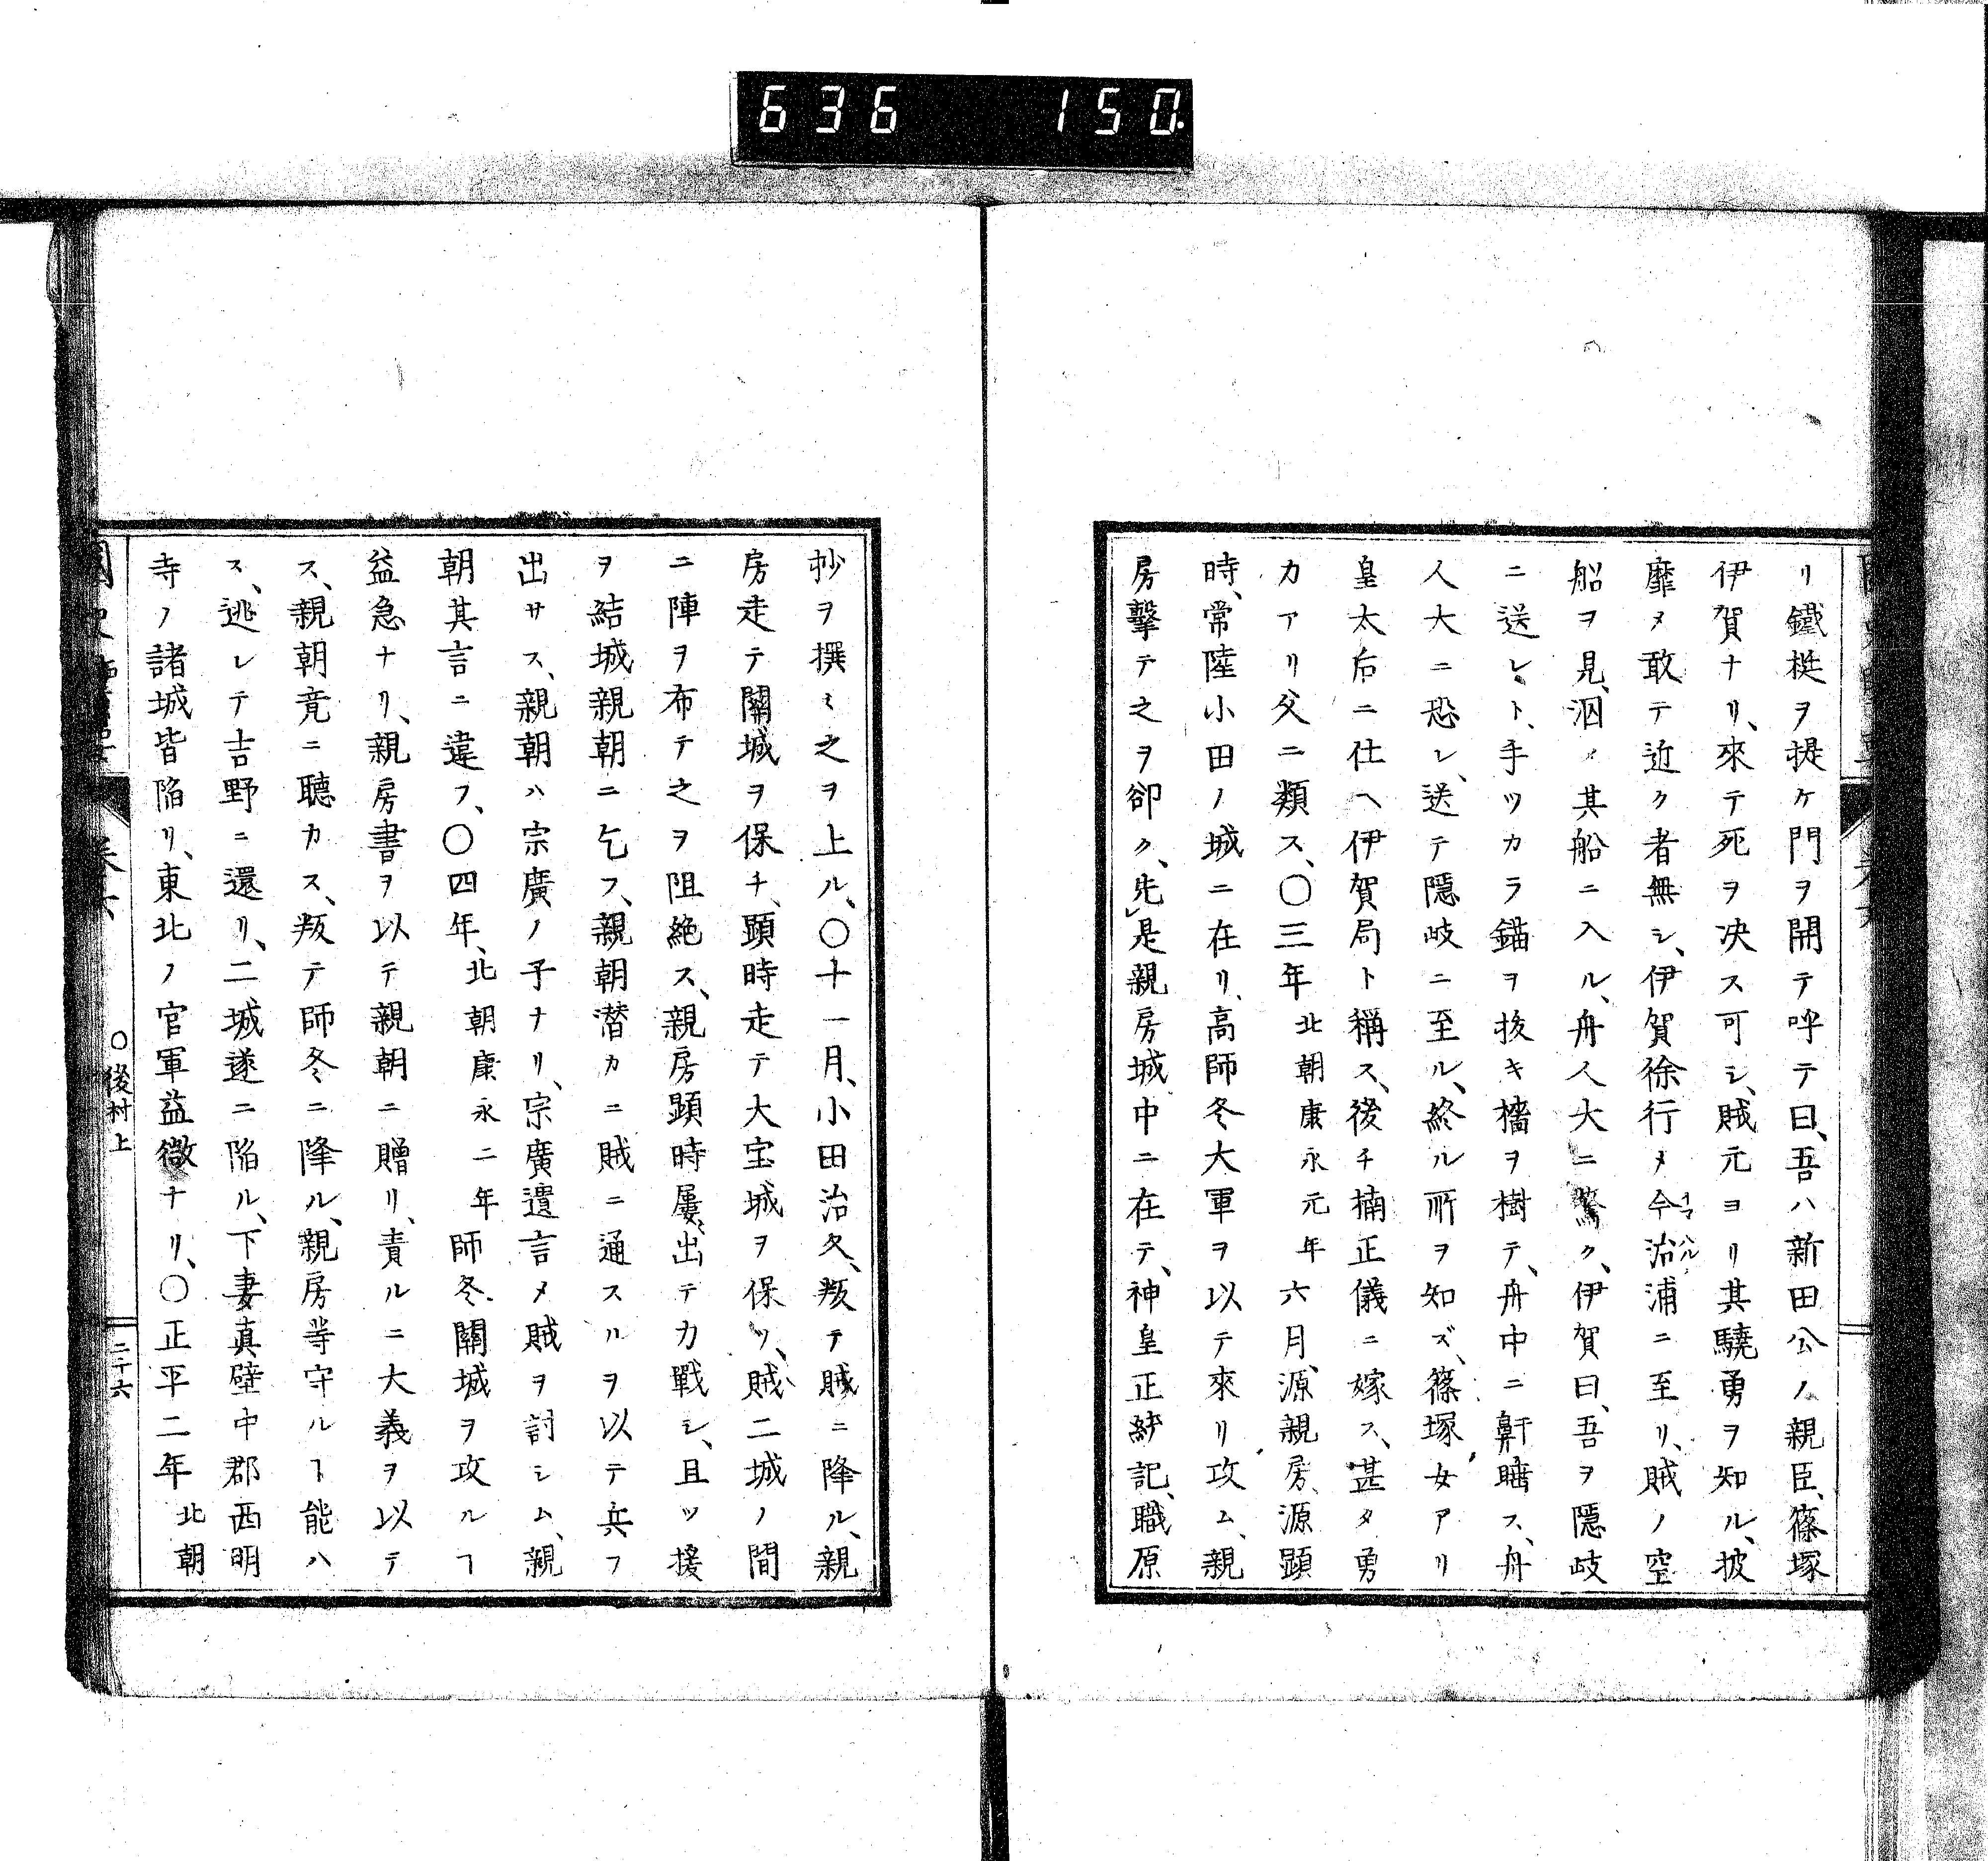 636 150.
リ鐵梃ヲ提ケ門ヲ開テ呼テ曰、吾ハ新田公ノ親臣、篠塚
伊賀ナリ、來テ死ヲ决ス可シ、賊元ヨリ其驍勇ヲ知ル、披
靡メ敢テ近ク者無シ、伊賀徐行メ今治浦ニ至リ、賊ノ空
イマハル
船ヲ見、泅メ其船ニ入ル、舟人大ニ驚ク、伊賀曰、吾ヲ隱岐
ニ送レヽト、手ツカラ錨ヲ拔キ檣ヲ樹テ、舟中ニ鼾睡ス、舟
人大ニ恐レ、送テ隱岐ニ至ル、終ル所ヲ知ズ、篠塚女アリ
皇太后ニ仕ヘ伊賀局ト稱ス、後チ楠正儀ニ嫁ス、甚タ勇
力アリ父ニ類ス、〇三年北朝康永元年六月、源親房、源顕
時、常陸小田ノ城ニ在リ、高師冬大軍ヲ以テ來リ攻ム、親
房擊テ之ヲ卻ク、先是親房城中ニ在テ、神皇正統記、職原
抄ヲ撰ミ之ヲ上ル、〇十一月、小田治久、叛テ賊ニ降ル、親
房走テ關城ヲ保チ、顕時走テ大宝城ヲ保ツ、賊二城ノ間
ニ陣ヲ布テ之ヲ阻絶ス、親房顕時屢〻出テ力戰シ、且ツ援
ヲ結城親朝ニ乞フ、親朝潛カニ賊ニ通スルヲ以テ兵ヲ
出サス、親朝ハ宗廣ノ子ナリ、宗廣遺言メ賊ヲ討シム、親
朝其言ニ違フ、〇四年、北朝康永二年師冬、關城ヲ攻ルヿ
益急ナリ、親房書ヲ以テ親朝ニ贈リ、責ルニ大義ヲ以テ
ス、親朝竟ニ聽カス、叛テ師冬ニ降ル、親房等守ルヿ能ハ
ス、逃レテ吉野ニ還リ、二城遂ニ陷ル、下妻真壁中郡西明
寺ノ諸城皆陷リ、東北ノ官軍益微ナリ、〇正平二年北朝
卷六 〇後村上 二十六